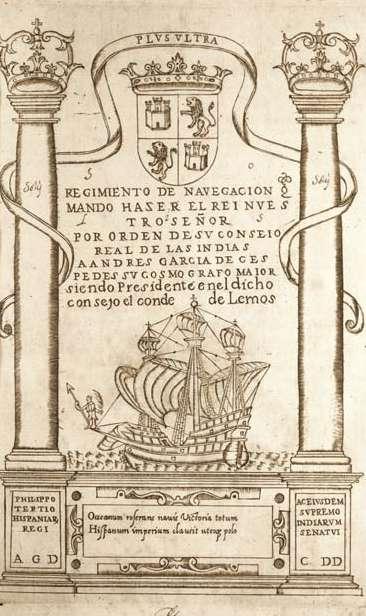 PLVS VLTRA
REGIMIENTO DE NAVEGACION Q
MANDO HASER EL REI NVES
TRO SEÑOR
POR ORDEN DE SV CONSEIO
REAL DE LAS INDIAS
A ANDRES GARCIA DE CES
PEDES SV COSMOGRAFO MAIOR
siendo Presidente en el dicho
consejo el conde de Lemos
PHILIPPO
TERTIO
HISPANIAR,
REGI
A G D
Oceanum reserans navis Victoria totum
Hispanum imperium clausit utroq; polo
AC EIVSDEM
SVPREMO
INDIARVM
SENATVI
C. DD